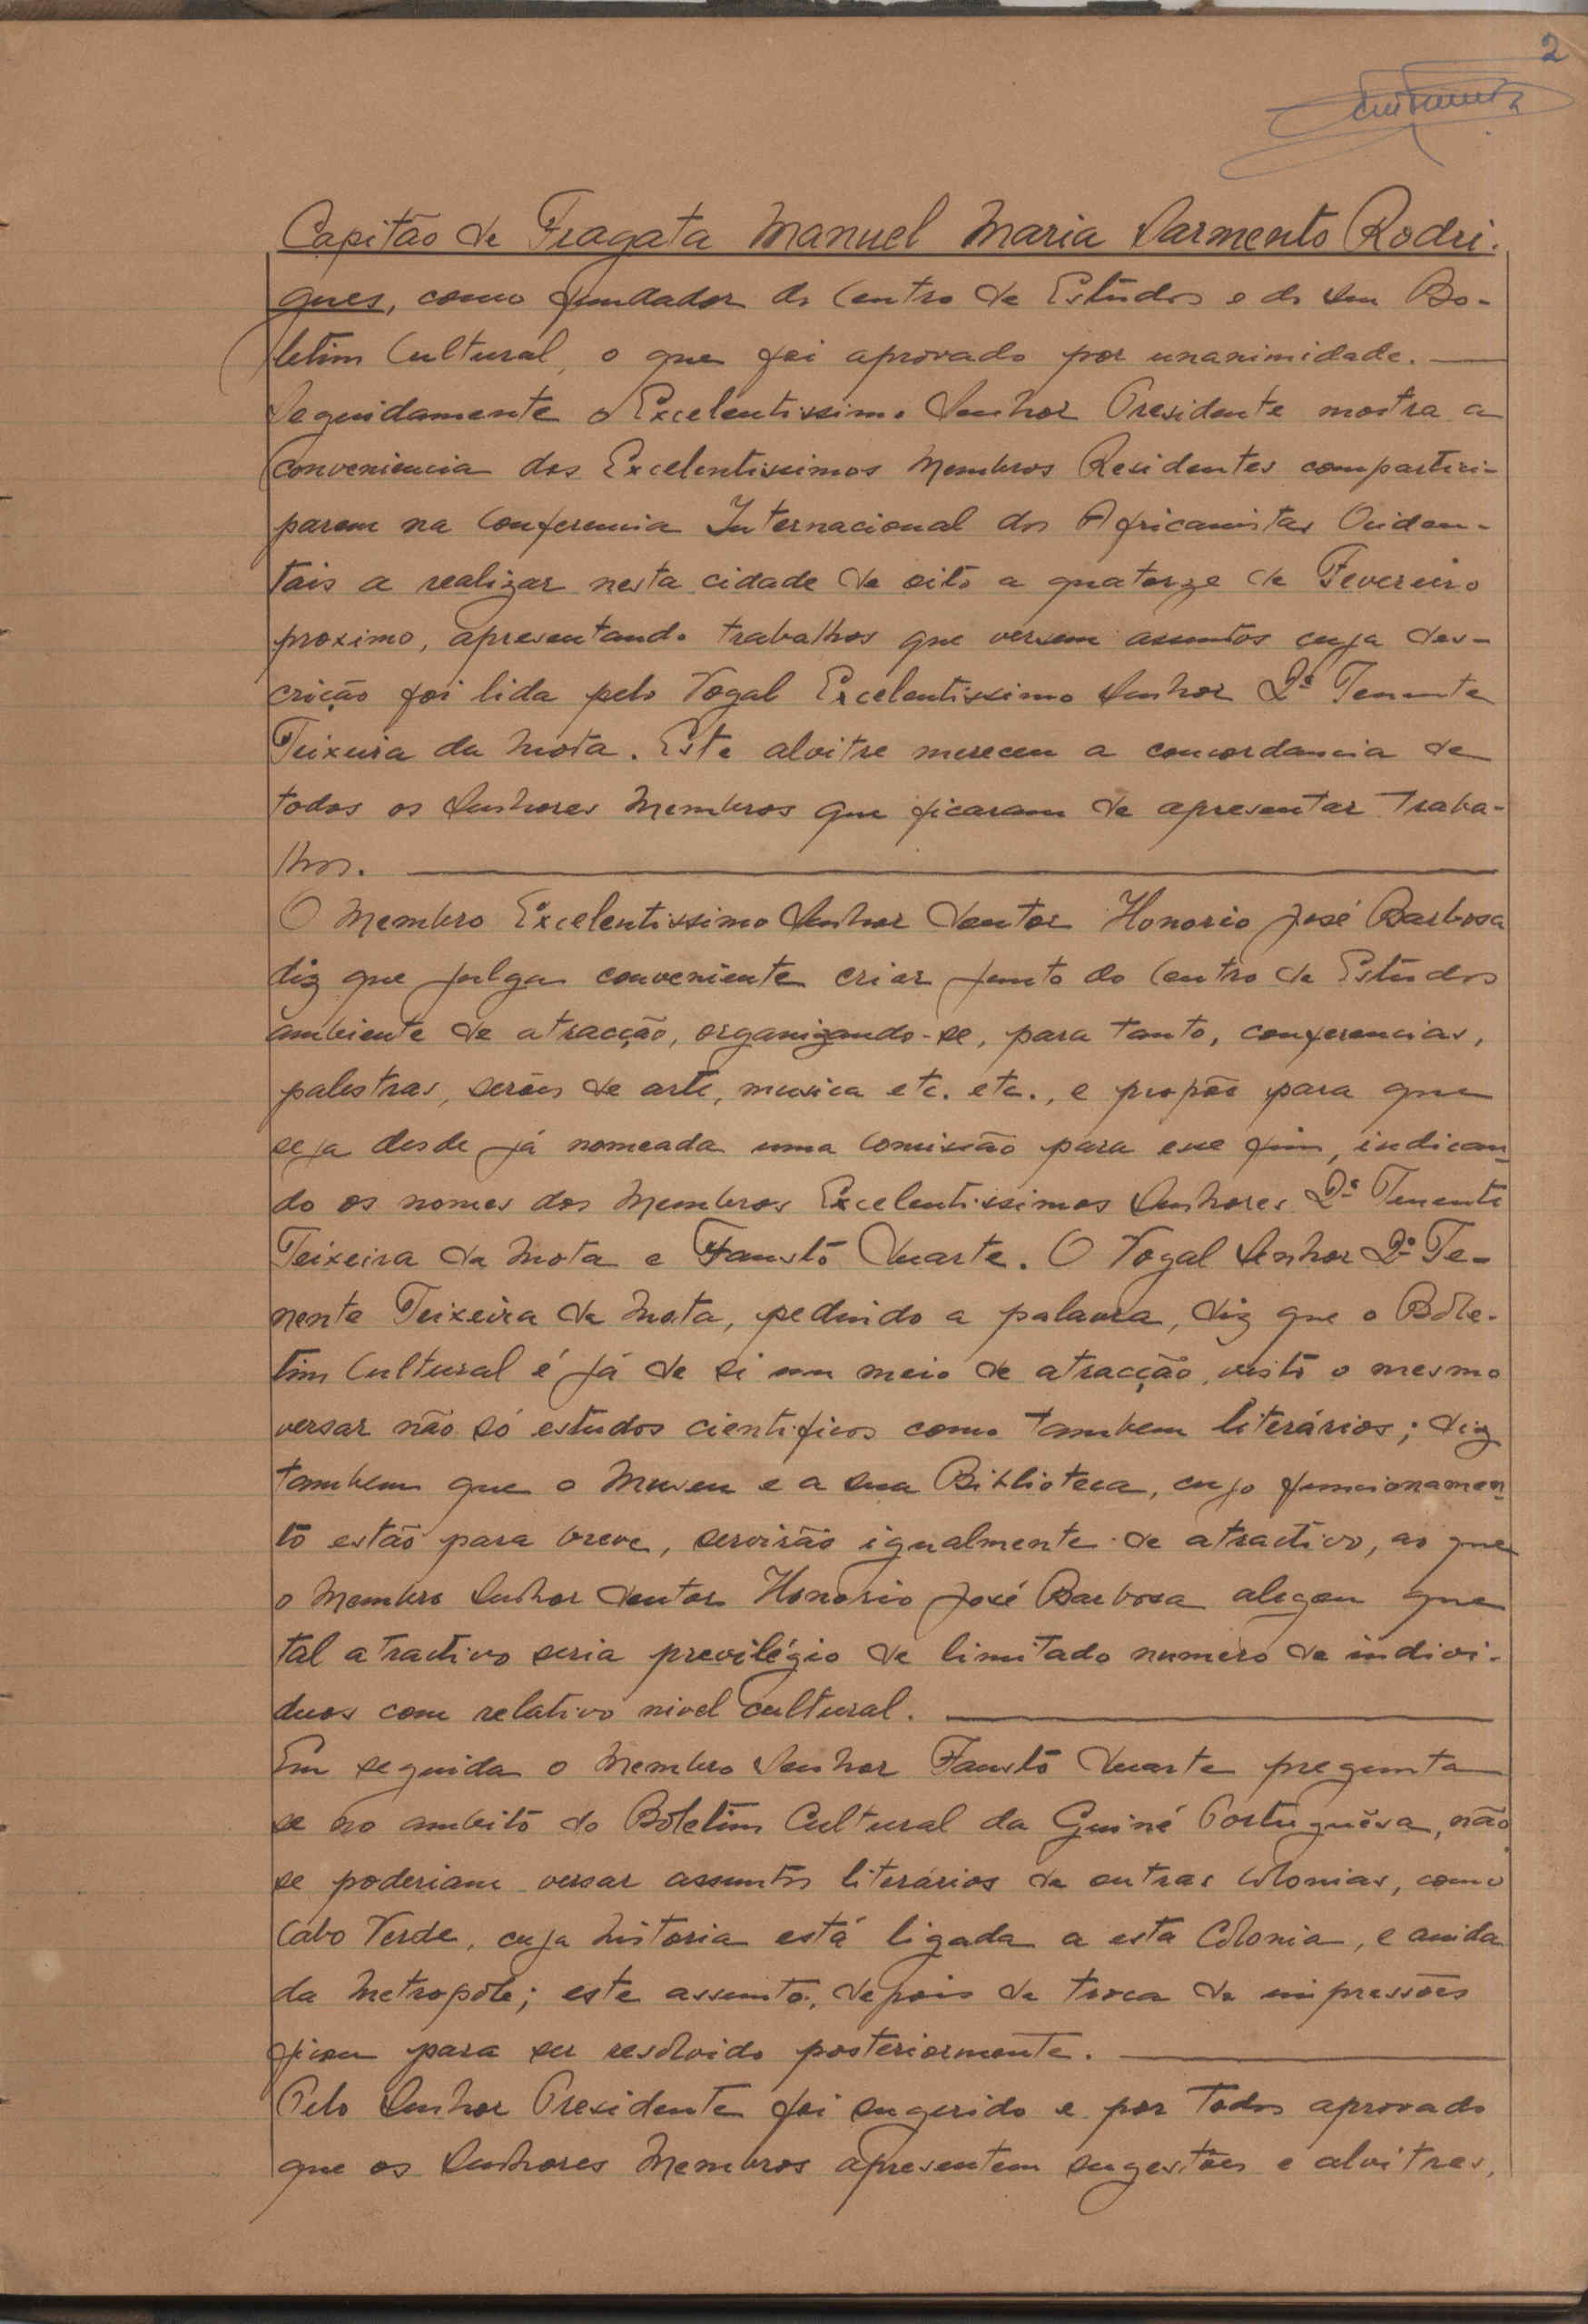 2
Capitão de Fragata Manuel Maria Sarmento Rodri-
gues, como fundador do Centro de Estudos e do seu Bo-
letim Cultural, o que foi aprovado por unanimidade.
Seguidamente o Excelentissimo Senhor Presidente mostra a
conveniencia dos Excelentissimos Membros Residentes comparteci-
parem na Conferencia Internacional dos Africanistas Ociden-
tais a realizar nesta cidade de oito a quatorze de Fevereiro
proximo, apresentando trabalhos que versem assuntos cuja des-
crição foi lida pelo Vogal Excelentissimo Senhor 2º Tenente
Teixeira da Mota. Este alvitre mereceu a concordancia de
todos os Senhores Membros que ficaram de apresentar traba-
lhos.
O Membro Excelentissimo Senhor Doutor Honorio José Barbosa
diz que julga conveniente criar junto do Centro de Estudos
ambiente de atracção, organizando-se, para tanto, conferencias,
palestras, serões de arte, musica etc. etc., e propõe para que
seja desde já nomeada uma comissão para esse fim, indican-
do os nomes dos Membros Excelentissimos Senhores 2º Tenente
Teixeira da Mota e Fausto Duarte. O Vogal Senhor 2º Te-
nente Teixeira da Mota, pedindo a palavra, diz que o Bole-
tim Cultural é já de si um meio de atracção, visto o mesmo
versar não só estudos cientificos como tambem literários; diz
tambem que o Museu e a sua Biblioteca, cujo funcionamen-
to estão para breve, servirão igualmente de atractivo, ao que
o Membro Senhor Doutor Honorio José Barbosa alegou que
tal atractivo seria previlégio de limitado numero de indivi-
duos com relativo nivel cultural.
Em seguida o Membro Senhor Fausto Duarte pregunta
se no ambito do Boletim Cultural da Guiné Portuguêsa, não
se poderiam versar assuntos literários de outras Colonias, como
Cabo Verde, cuja historia está ligada a esta Colonia, e ainda
da Metropole; este assunto, depois de troca de impressões
ficou para ser resolvido posteriormente.
Pelo Senhor Presidente foi sugerido e por todos aprovado
que os Senhores Membros apresentem sugestões e alvitres,